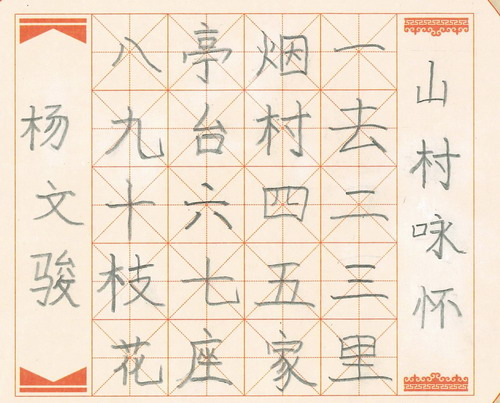 山村咏怀
一去二三里
烟村四五家
亭台六七座
八九十枝花
杨文骏